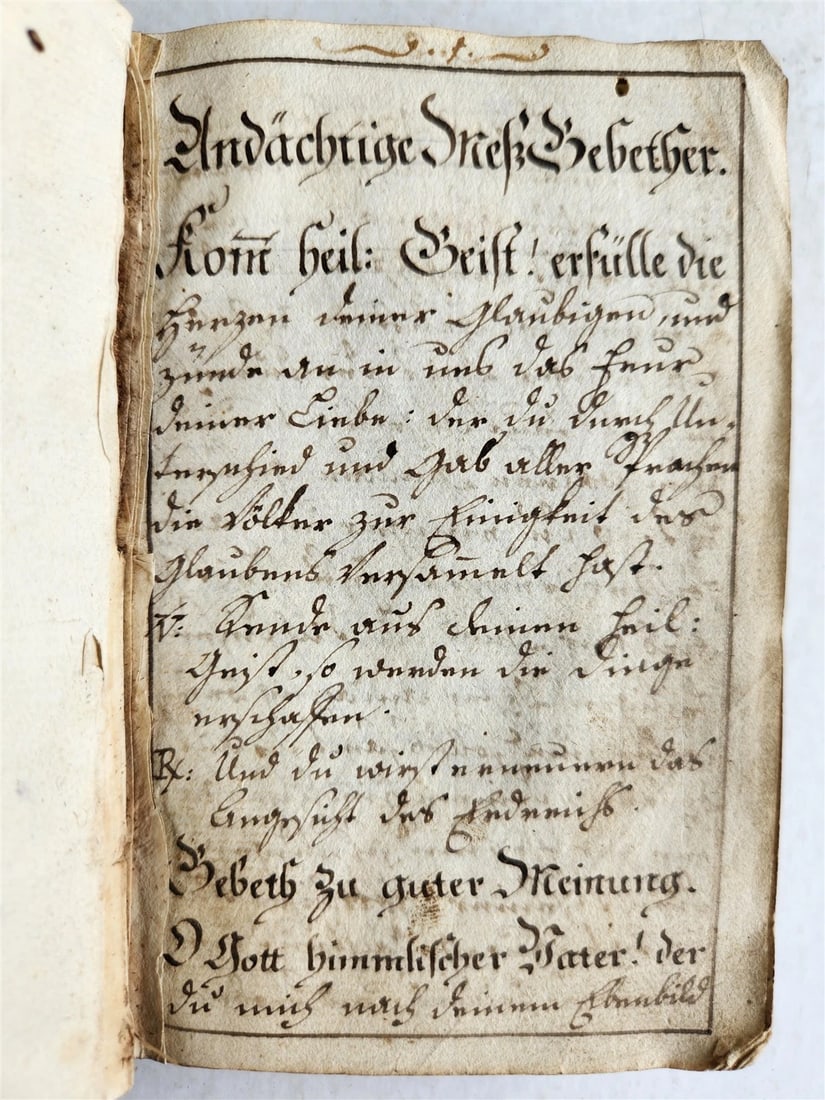 . . 1. .
Andächtige Meß Gebether.
Kom̄ heil: Geist! erfülle die
Herzen deiner Glaubigen, und
zünde an in uns das Feur
deiner Liebe: der du durch Un-
terschied und Gab aller Sprachen
die Völker zur Einigkeit des
Glaubens versam̄elt hast.
V: Sende aus deinen heil:
Geist, so werden die Dinge
erschaffen.
R: Und du wirst erneuern das
Angesicht des Erdreichs.
Gebeth zu guter Meinung.
O Gott himmlischer Vater! der
du mich nach deinem Ebenbild